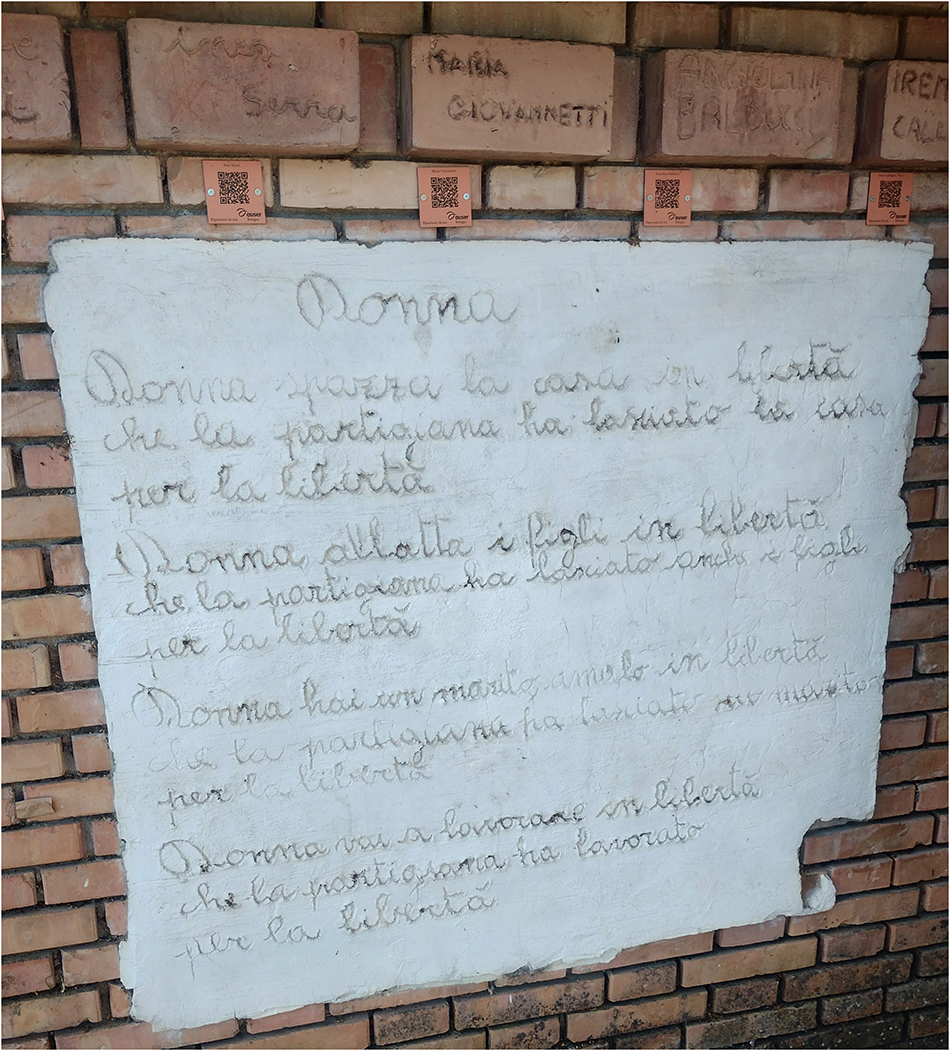 Serra
MARIA
GIOVANNETTI
ANGIOLINA
BALDUCCI
IREN
CALL
auser
auser
auser
auser
Donna
Donna spazza la casa in libertà
che la partigiana ha lasciato la casa
per la libertà
Donna allatta i figli in libertà
che la partigiana ha lasciato anche i figli
per la libertà
Donna hai un marito amalo in libertà
che la partigiana ha lasciato suo marito
per la libertà
Donna vai a lavorare in libertà
che la partigiana ha lavorato
per la libertà